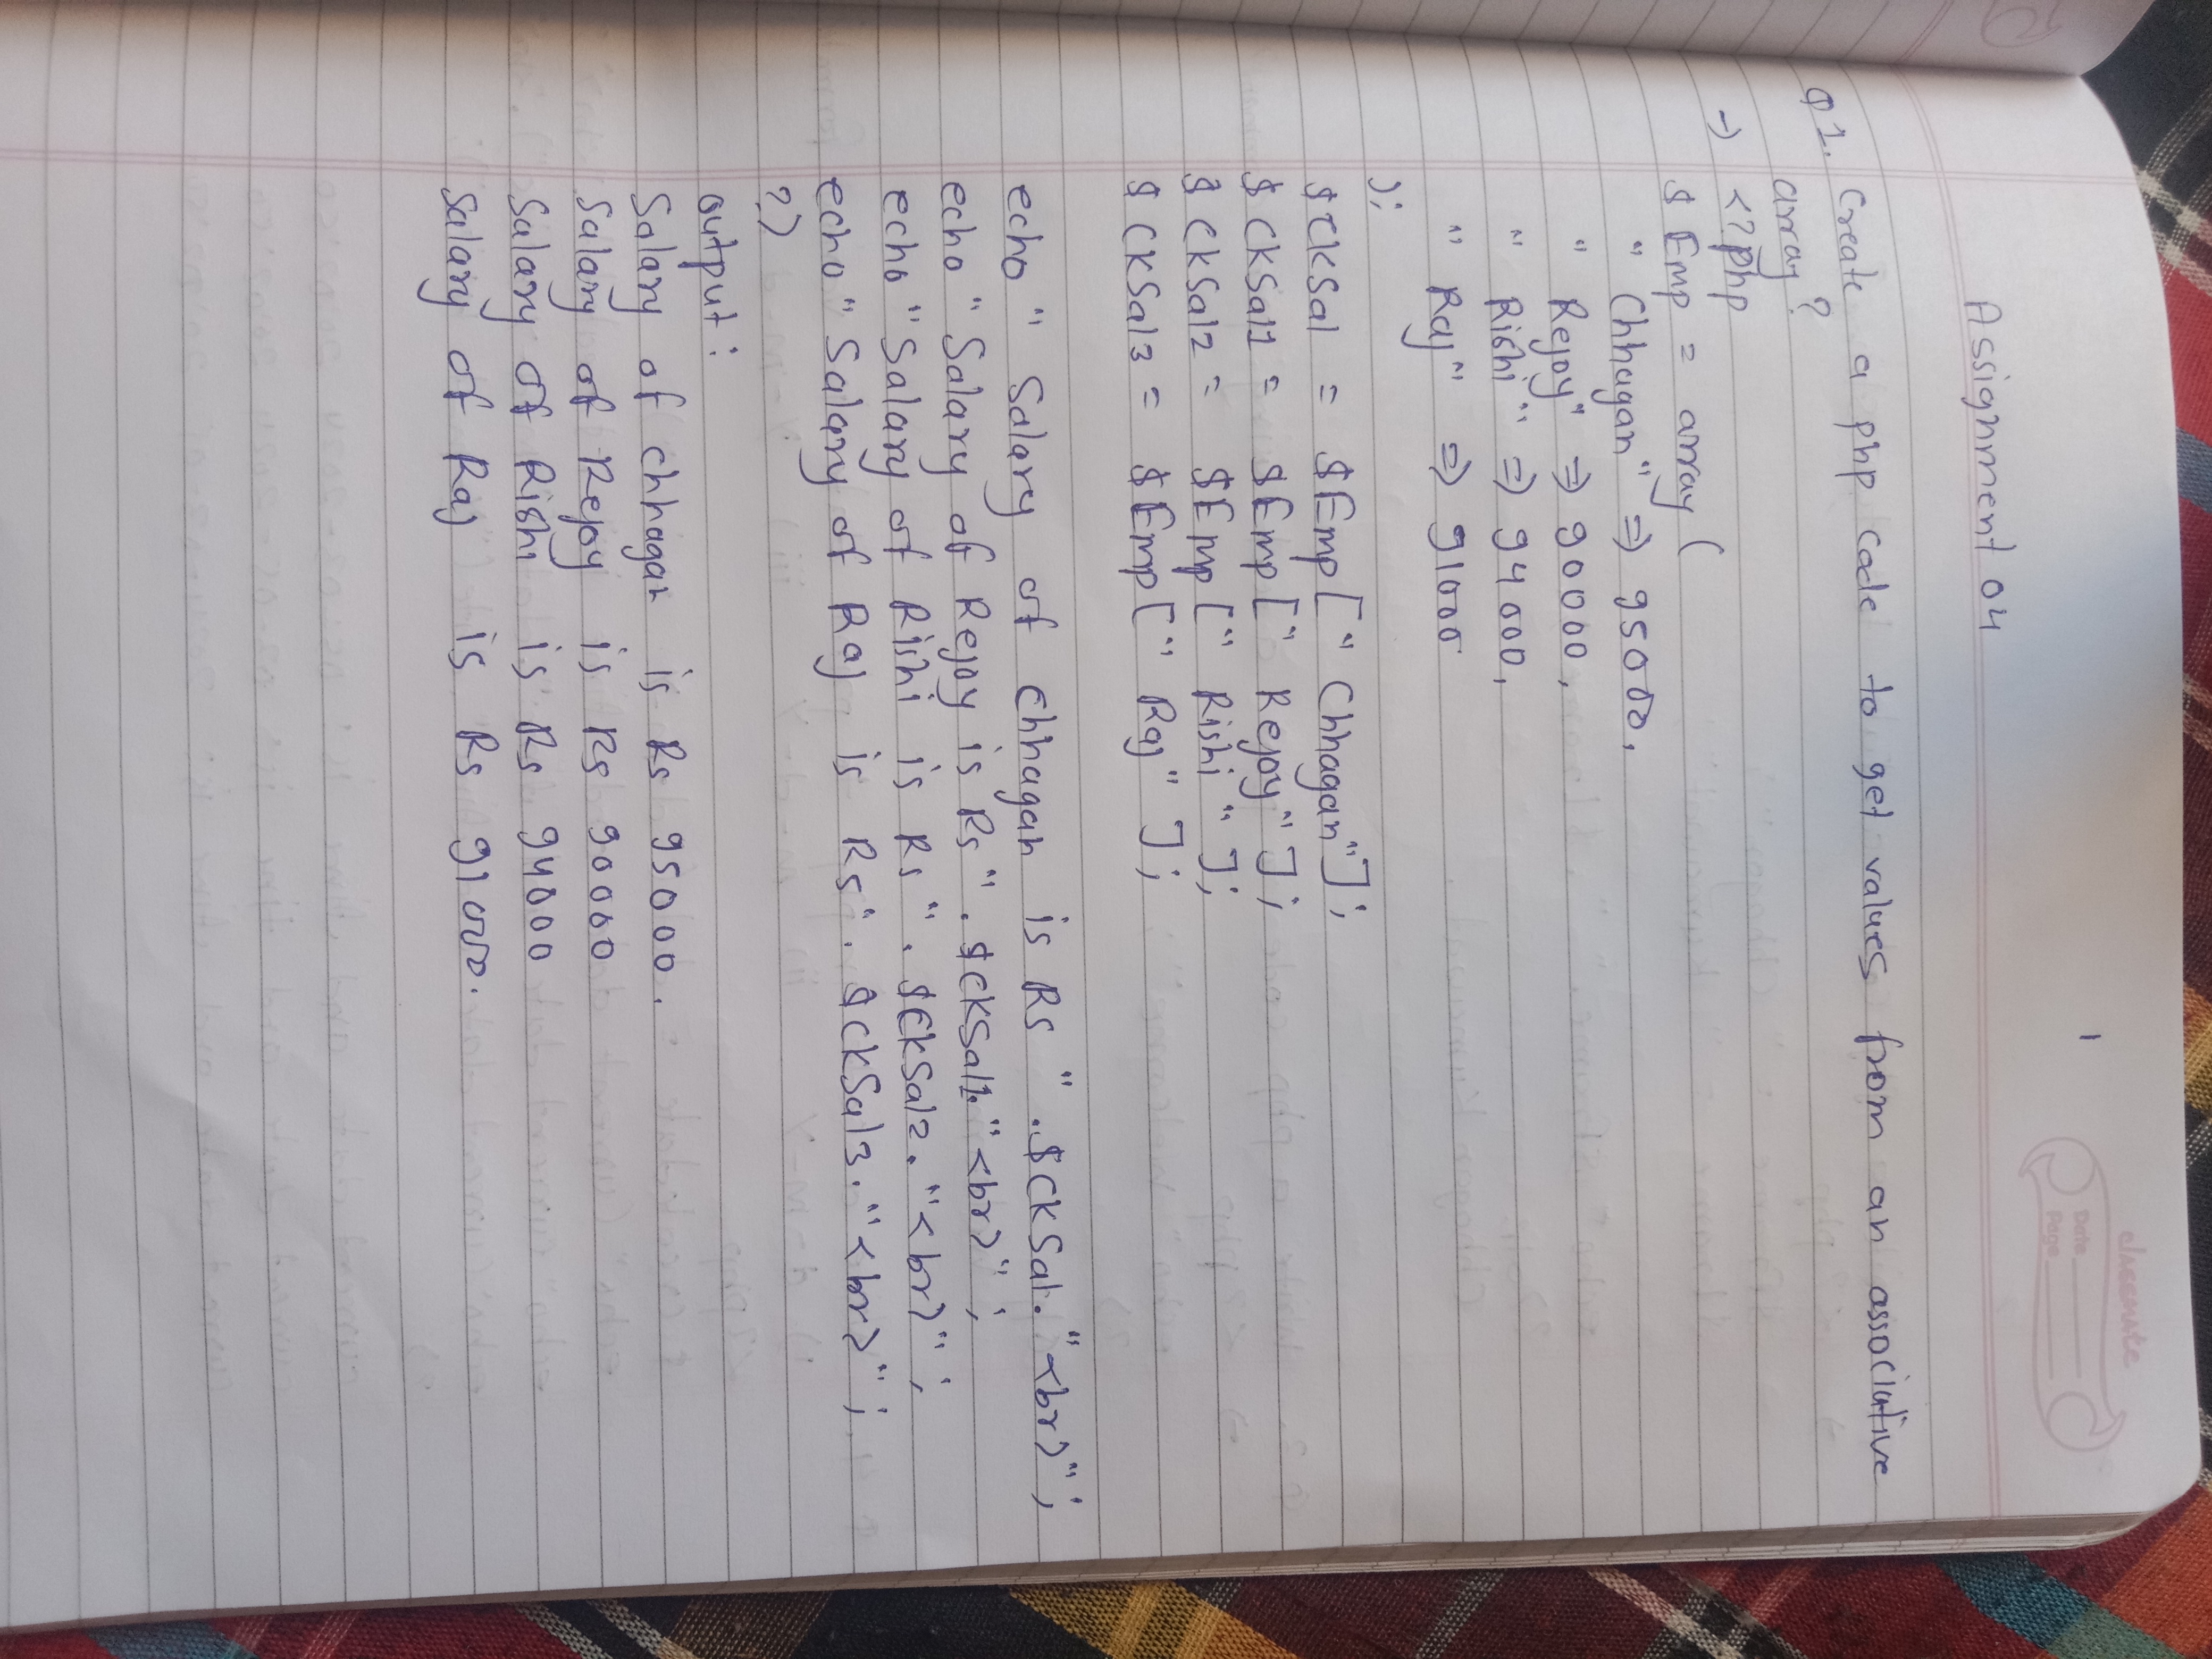 1
classmate
Date
Page
Assignment 04
Q1. Create a php code to get values from an associative
array ?
→ <?php
$Emp = array (
"Chhagan" => 95000,
"Rejoy" => 90000,
"Rishi" => 94000,
"Raj" => 91000
);
$CkSal = $Emp["Chhagan"];
$CkSal1 = $Emp["Rejoy"];
$CkSal2 = $Emp["Rishi"];
$CkSal3 = $Emp["Raj"];
echo "Salary of Chhagan is Rs".$CkSal."<br>";
echo "Salary of Rejoy is Rs".$CkSal1."<br>";
echo "Salary of Rishi is Rs".$CkSal2."<br>";
echo "Salary of Raj is Rs".$CkSal3."<br>";
?>
output:
Salary of Chhagan is Rs 95000.
Salary of Rejoy is Rs 90000
Salary of Rishi is Rs 94000
Salary of Raj is Rs 91000.